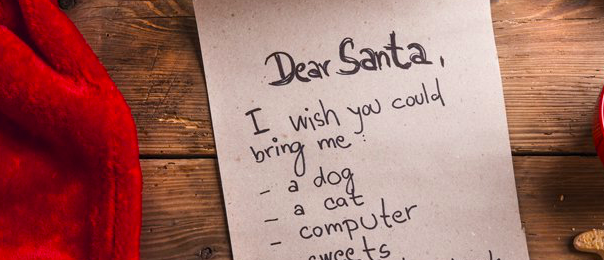 Dear Santa,
I wish you could
bring me :
- a dog
- a cat
- computer
sweets